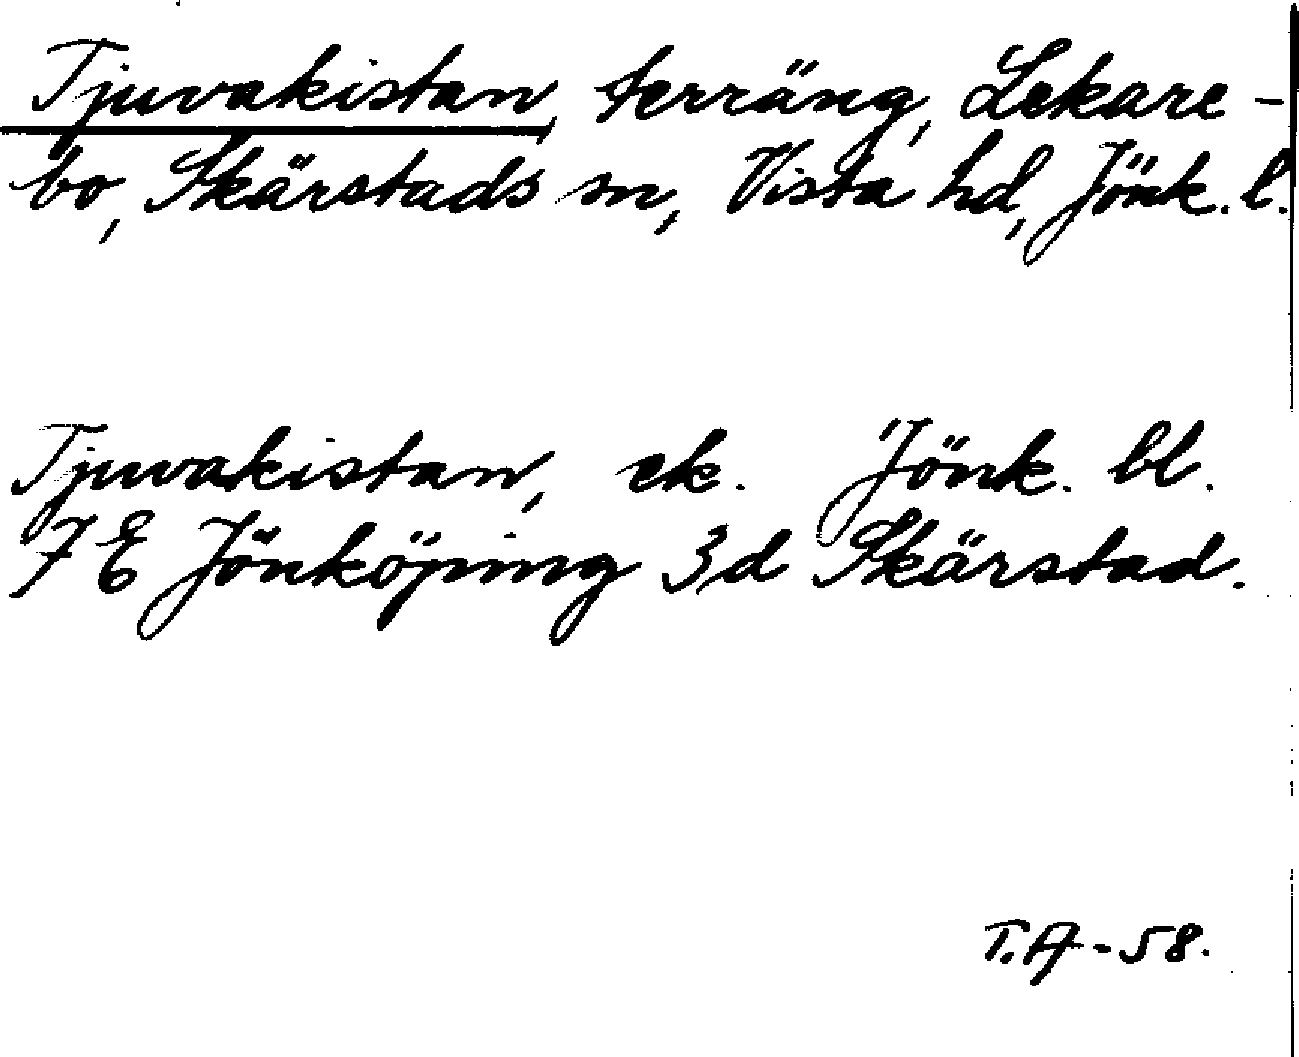 Tjuvakistan, terräng, Lekare-
bo, Skärstads sn, Vista hd, Jönk. l.
Tjuvakistan, ek. Jönk. bl.
7 E Jönköping 3,d Skärstad.
T.A-58.